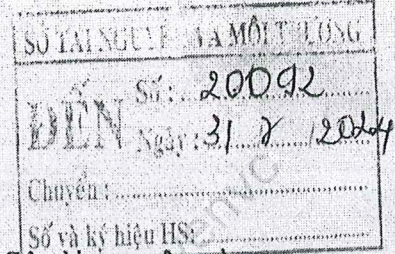 SỞ TÀI NGUYÊN VÀ MÔI TRƯỜNG
ĐẾN
Số: 20092
Ngày: 31 / 7 / 2024
Chuyển:
Số và ký hiệu HS: